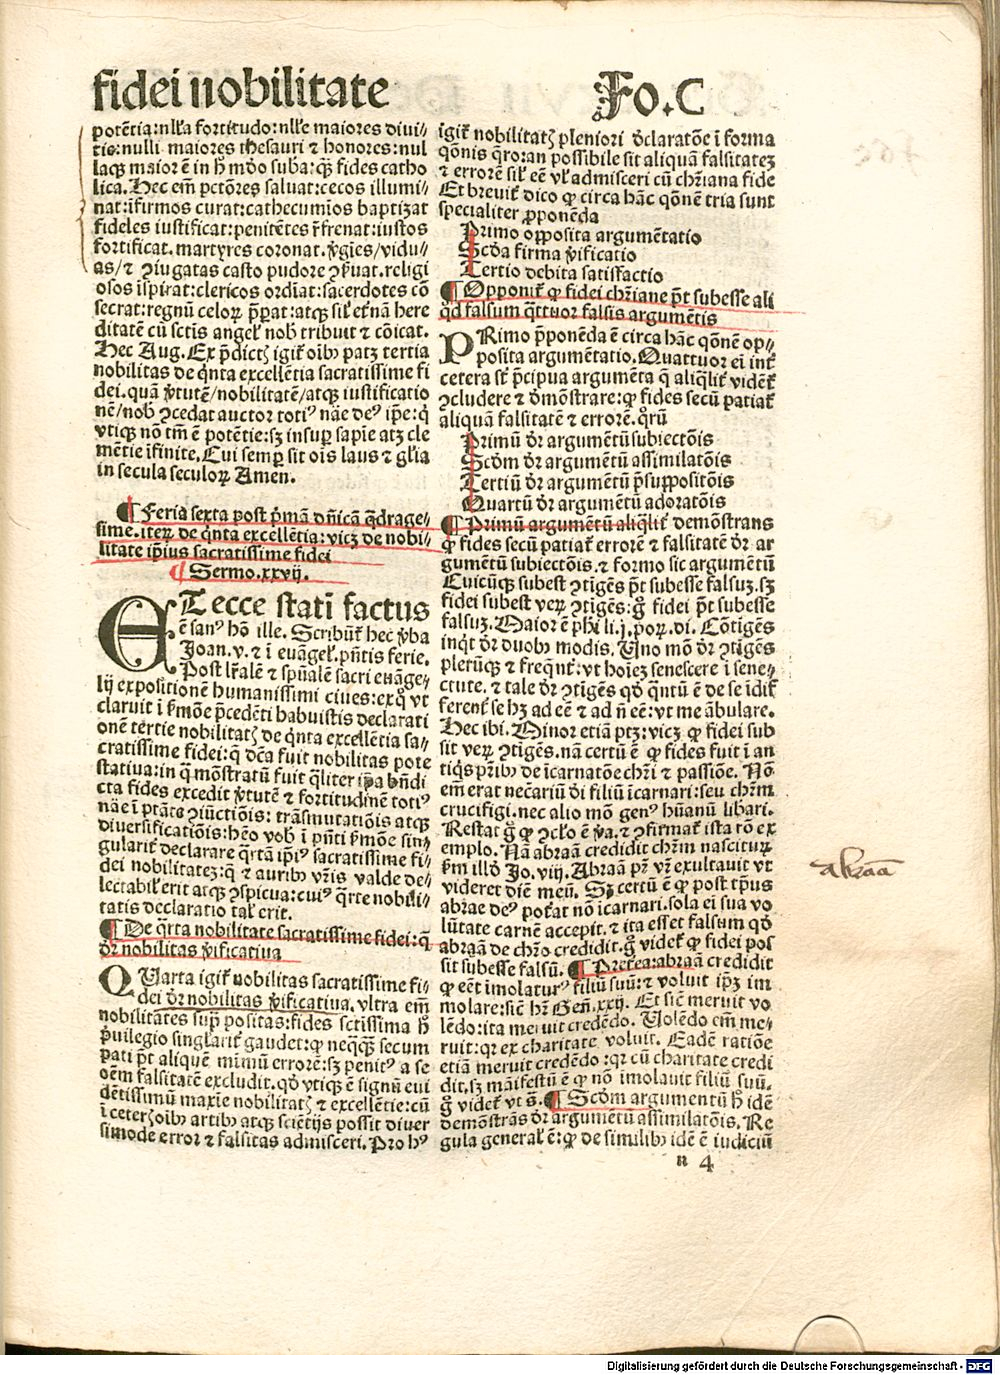 fidei nobilitate
Fo.C
potẽtia:nlľa fortitudo:nlľe maiores diui⸗
tie:nulli maiores thesauri ⁊ honores:nul
laqꝫ maior ē in h mõdo suba: qꝫ̃ fides catho
lica. Hec em̃ pctõres saluat:cecos illumi⸗
nat:ĩfirmos curat:cathecumĩos baptizat
fideles iustificat:penitẽtes r̃frenat:iustos
fortificat. martyres coronat. ṽgĩes/vidu⸗
as/⁊ ꝯiugatas casto pudore ꝯẜuat. religi
osos ĩspirat:clericos ordĩat:sacerdotes cõ
secrat:regnũ celoꝝ p̃pat: atqꝫ siľ et̃nã here
ditatẽ cũ sctĩs angeľ nob̃ tribuit ⁊ cõicat.
Hec Aug. Ex p̃dictꝭ igit̃ oĩbꝰ patꝫ tertia
nobilitas de q̃nta excellẽtia sacratissime fi
dei. quã ṽtutẽ/nobilitatẽ/atqꝫ iustificatio
nẽ/nob̃ ꝯcedat auctor totiꝰ nãe deꝰ ip̃e: q̇
vtiqꝫ nõ tm̃ ē potẽtie: sꝫ insuꝑ sapie atqꝫ cle
mẽtie ĩfinite. Cui semꝑ sit oĩs laus ⁊ gľia
in secula seculoꝝ Amen.
¶ Feria sexta post p̃mã dñicã q̃drage⸗
sime. iteꝝ de q̃nta excellẽtia: vicꝫ de nobi⸗
litate ip̃ius sacratissime fidei
¶ Sermo.xxvij.
ET ecce statĩ factus
ē sanꝰ hõ ille. Scribũt̃ hec ṽba
Joan.v. ⁊ ĩ euãgeľ. pñtis ferie.
Post lr̃alẽ ⁊ spũalẽ sacri euãge⸗
lij expositionẽ humanissimi ciues: ex q̇ vt
claruit ĩ ẜmõe p̃cedẽti habuistis declarati
onẽ tertie nobilitatꝭ de q̃nta excellẽtia sa⸗
cratissime fidei: q̃ dc̃a fuit nobilitas pote
statiua: in q̃ mõstratũ fuit q̃liter ip̃a bñdi
cta fides excedit ṽtutẽ ⁊ fortitudinẽ totiꝰ
nãe ĩ ptãte ꝯiũctiõis: trãsmutatiõis atqꝫ
diuersificatiõis: hẽo vob̃ ĩ pñti ẜmõe sin⸗
gularit̃ declarare q̃rtã ip̃iꝰ sacratissime fi⸗
dei nobilitateꝫ: q̃ ⁊ auribꝰ vr̃is valde de⸗
lectabiľ erit atqꝫ ꝯspicua: cuiꝰ q̃rte nobili⸗
tatis declaratio talˀ erit.
¶ De q̃rta nobilitate sacratissime fidei: q̃
dr̃ nobilitas ṽificatiua
QUarta igit̃ nobilitas sacratissime fi⸗
dei dr̃ nobilitas ṽificatiua. vltra em̃
nobilitates sup̃ positas: fides sctissima h̃
p̃uilegio singľarit̃ gaudet: ꝙ neqꝙ̃ secum
pati pt̃ aliquẽ minimũ errorẽ: sꝫ penitꝰ a se
oẽm falsitatẽ excludit. qd̃ vtiqꝫ ē signũ eui
dẽtissimũ maxĩe nobilitatꝭ ⁊ excellẽtie: cũ
ĩ ceterꝭ oĩbꝰ artibꝰ atqꝫ sciẽtijs possit diuer
simode error ⁊ falsitas admisceri. Pro hꝰ
igit̃ nobilitatꝭ pleniori d̃claratõe ĩ forma
qõnis q̃ro: an possibile sit aliquã falsitateꝫ
⁊ errorẽ siľ eẽ vľ admisceri cũ chr̃iana fide
Et breuit̃ dico ꝙ circa hãc qõnẽ tria sunt
specialiter ꝓponẽda
Primo opposita argumẽtatio
Scd̃a firma ṽificatio
Tertio debita satisfactio
¶ Opponit̃ ꝙ fidei chr̃iane pt̃ subesse ali
qd̃ falsum q̃ttuor falsis argumẽtis
PRimo p̃ponẽda ē circa hãc qõnẽ op⸗
posita argumẽtatio. Quattuor ei int̃
cetera st̃ p̃cipua argumẽta q̃ aliq̃lit̃ vidẽt̃
ꝯcludere ⁊ d̃mõstrare: ꝙ fides secũ patiat̃
aliquã falsitatẽ ⁊ errorẽ. q̃rũ
Primũ dr̃ argumẽtũ subiectõis
Scd̃m dr̃ argumẽtũ assimilatõis
Tertiũ dr̃ argumẽtũ p̃suppositõis
Quartũ dr̃ argumẽtũ adoratõis
¶ Primũ argumẽtũ aliq̃lit̃ demõstrans
ꝙ fides secũ patiat̃ errorẽ ⁊ falsitatẽ dr̃ ar
gumẽtũ subiectõis. ⁊ formo sic argumẽtũ
Cuicũqꝫ subest ꝯtĩgẽs pt̃ subesse falsuꝫ. sꝫ
fidei subest veꝝ ꝯtĩgẽs: g̊ fidei pt̃ subesse
falsuꝫ. Maior ē phĩ li.j. poꝝ. di. Cõtĩgẽs
inq̇t dr̃ duobꝰ modis. Uno mõ dr̃ ꝯtĩgẽs
pleꝝqꝫ ⁊ freq̃nt̃: vt hoĩeꝫ senescere ĩ sene⸗
ctute. ⁊ tale dr̃ ꝯtĩgẽs qd̃ q̃ntũ ē de se ĩdif
ferent̃ se hꝫ ad eẽ ⁊ ad ñ eẽ: vt me ãbulare.
Hec ibi. Minor etiã ptꝫ: vicꝫ ꝙ fidei sub
sit veꝝ ꝯtĩgẽs. nã certũ ē ꝙ fides fuit ĩ an
tiq̇s pr̃ibꝰ de ĩcarnatõe chr̃i ⁊ passiõe. Nõ
em̃ erat nec̃ariũ dei filiũ ĩcarnari: seu chr̃m
crucifigi. nec alio mõ genꝰ hũanũ libari.
Restat g̊ ꝙ ꝯclo ē ṽa. ⁊ ꝯfirmat̃ ista rõ ex
emplo. Nã abraã credidit chr̃m nascituꝝ
ẜm illd̃ Jo. viij. Abraã pr̃ vr̃ exultauit vt
videret diẽ meũ. Sꝫ certũ ē ꝙ post tp̃us
abrae deꝰ pot̃at nõ ĩcarnari. sola ei sua vo
lũtate carnẽ accepit. ⁊ ita esset falsum qd̃
abraã de chr̃o credidit. g̊ videt̃ ꝙ fidei pos
sit subesse falsũ. ¶ Preterea: abraã credidit
ꝙ eẽt ĩmolaturꝰ filiũ suũ: ⁊ voluit ip̃ꝫ im
molare: sic̃ hr̃ Geñ. xxij. Et sic̃ meruit vo
lẽdo: ita meruit credẽdo. Uolẽdo em̃ me⸗
ruit: qꝛ ex charitate voluit. Eadẽ ratiõe
etiã meruit credẽdo: qꝛ cũ charitate credi
dit. sꝫ mãifestũ ē ꝙ nõ imolauit filiũ suũ.
g̊ videt̃ vt s̃. ¶ Scd̃m argumentũ h̃ idẽ
demõstrãs dr̃ argumẽtũ assimilatõis. Re
gula generaľ ē: ꝙ de similibꝰ idẽ ē iudiciũ
n 4
abraã
Digitalisierung gefördert durch die Deutsche Forschungsgemeinschaft - DFG